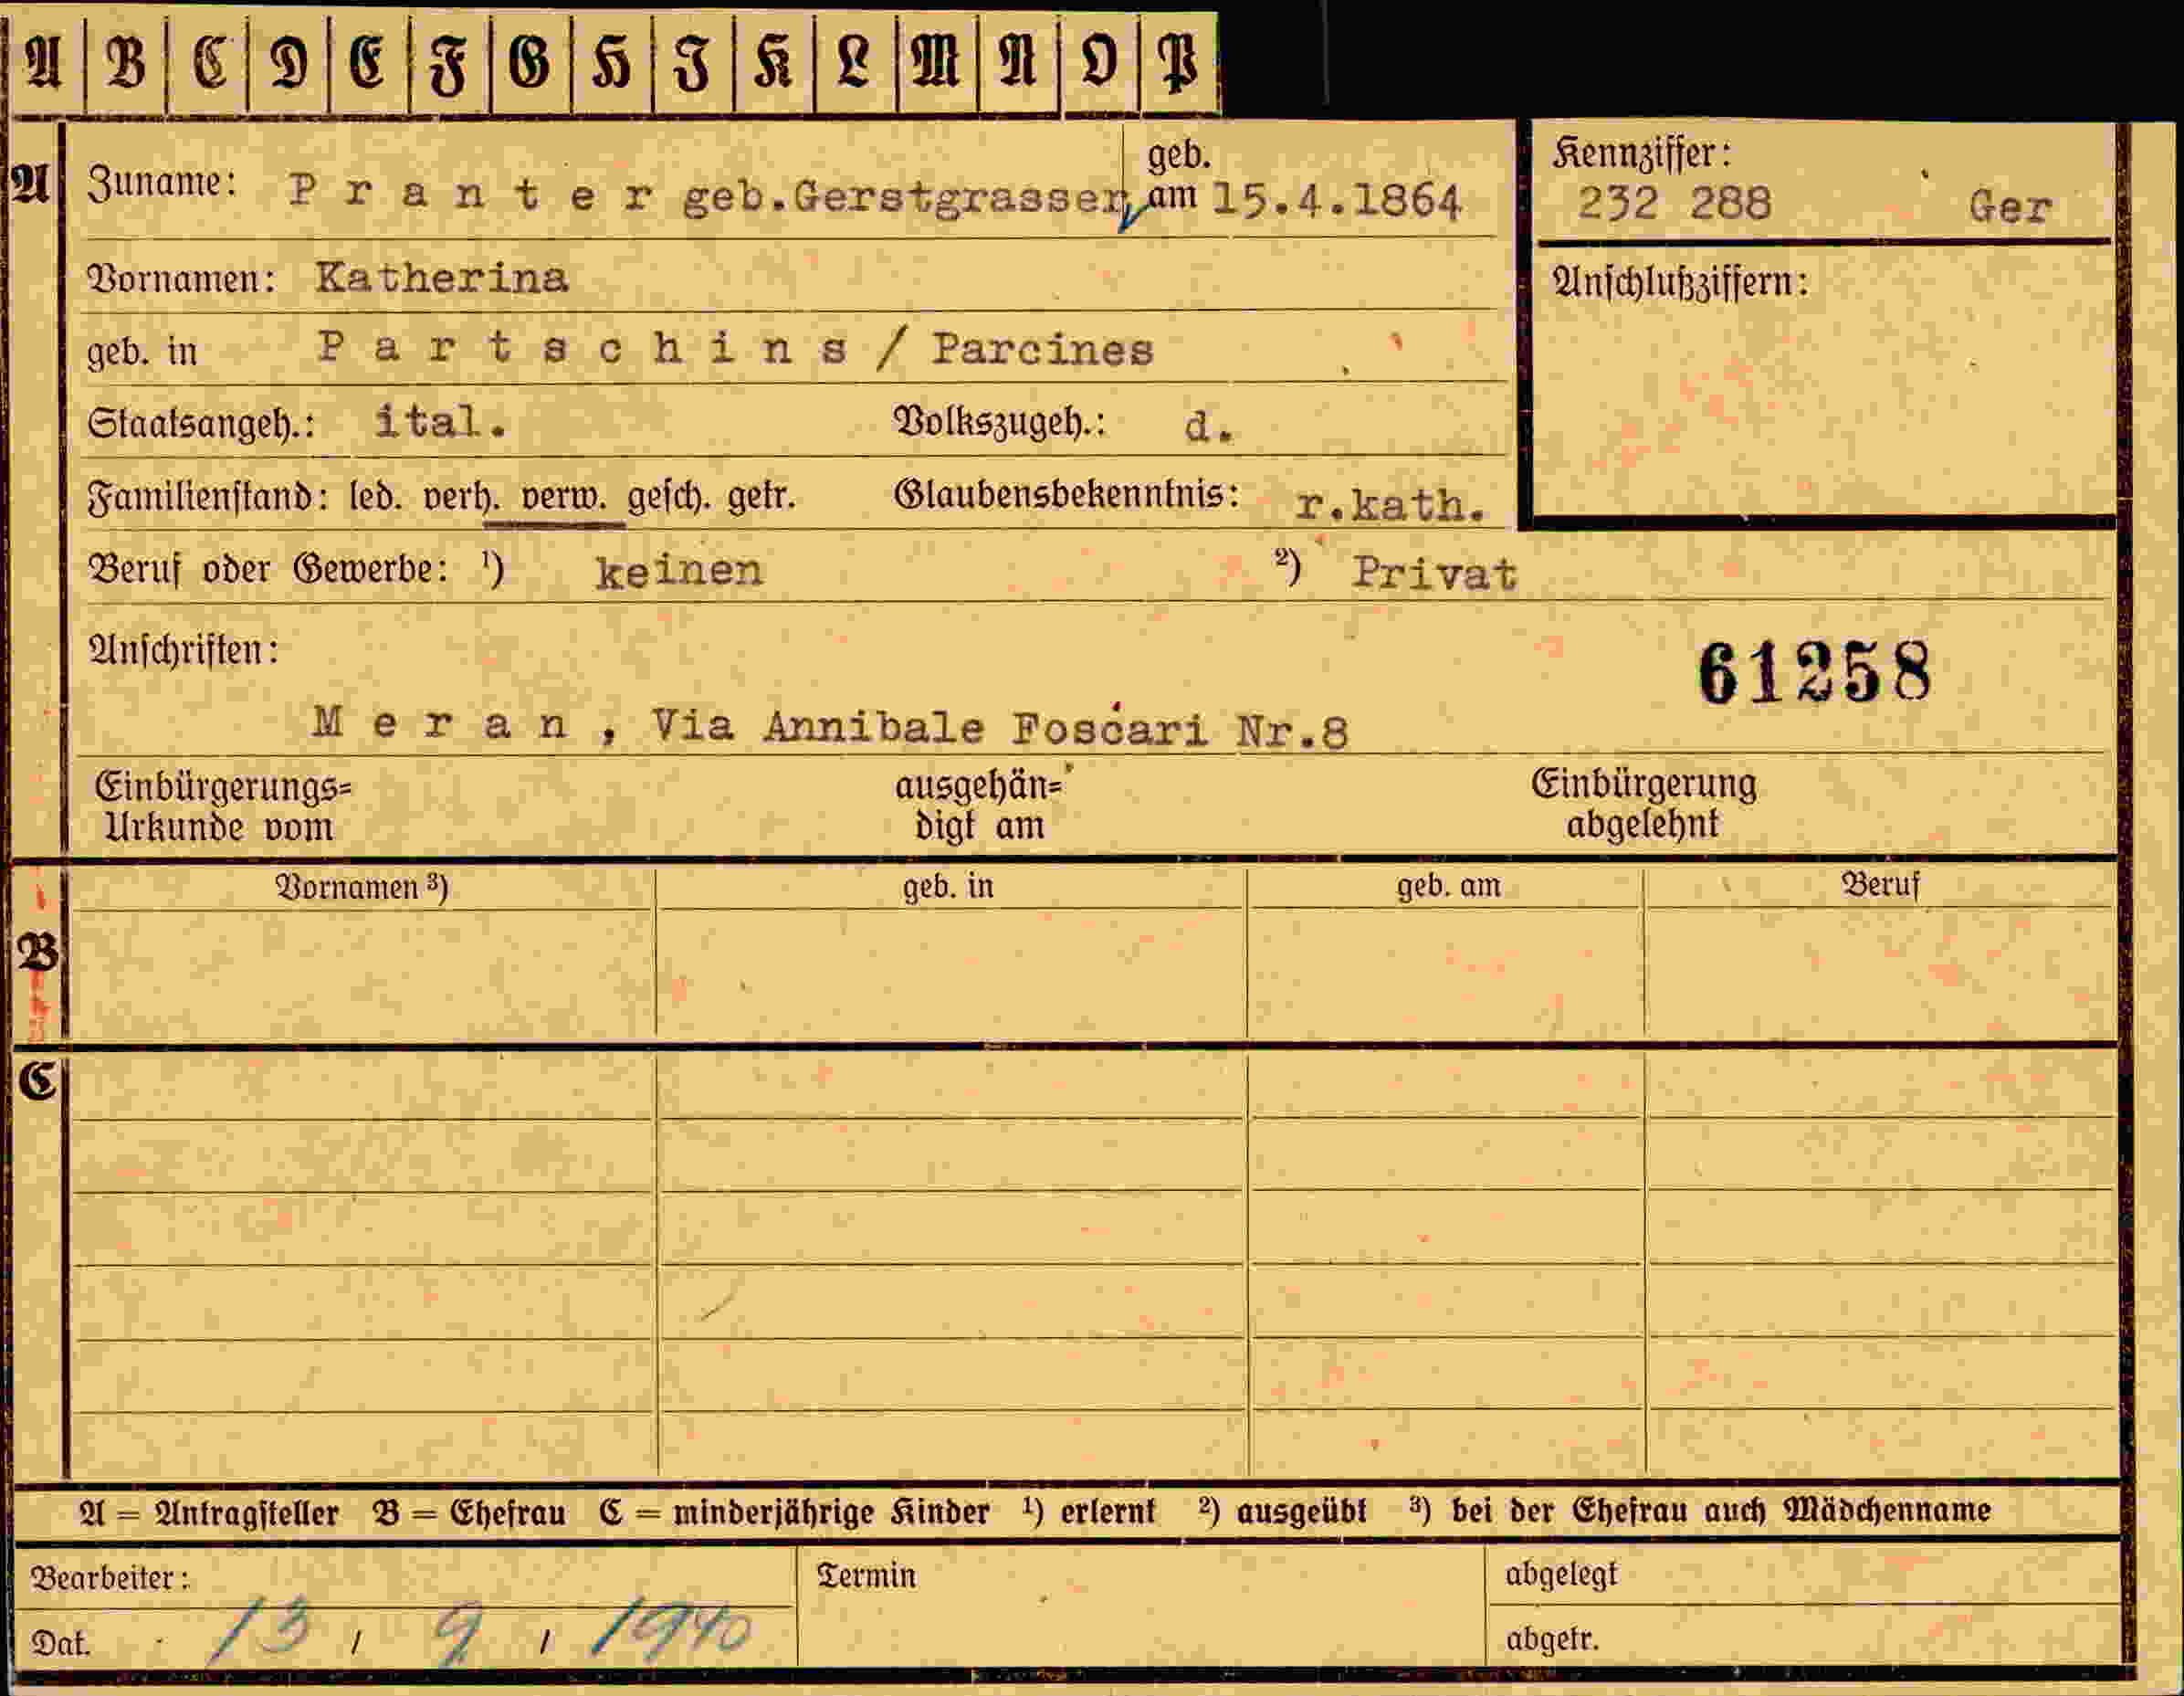 A B C D E F G H J K L M N O P
A
Zuname: P r a n t e r geb.Gerstgrasser geb. am 15.4.1864
Kennziffer:
232 288 Ger
Vornamen: Katherina
Anschlußziffern:
geb. in P a r t s c h i n s / Parcines
Staatsangeh.: ital. Volkszugeh.: d.
Familienstand: led. verh. verw. gesch. getr. Glaubensbekenntnis: r.kath.
Beruf oder Gewerbe: ¹) keinen ²) Privat
Anschriften:
61258
M e r a n , Via Annibale Foscari Nr.8
Einbürgerungs= ausgehän= Einbürgerung
Urkunde vom digt am abgelehnt
Vornamen ³) geb. in geb. am Beruf
B
C
A = Antragsteller B = Ehefrau C = minderjährige Kinder ¹) erlernt ²) ausgeübt ³) bei der Ehefrau auch Mädchenname
Bearbeiter: Termin abgelegt
Dat. 13 / 9 / 1940 abgetr.